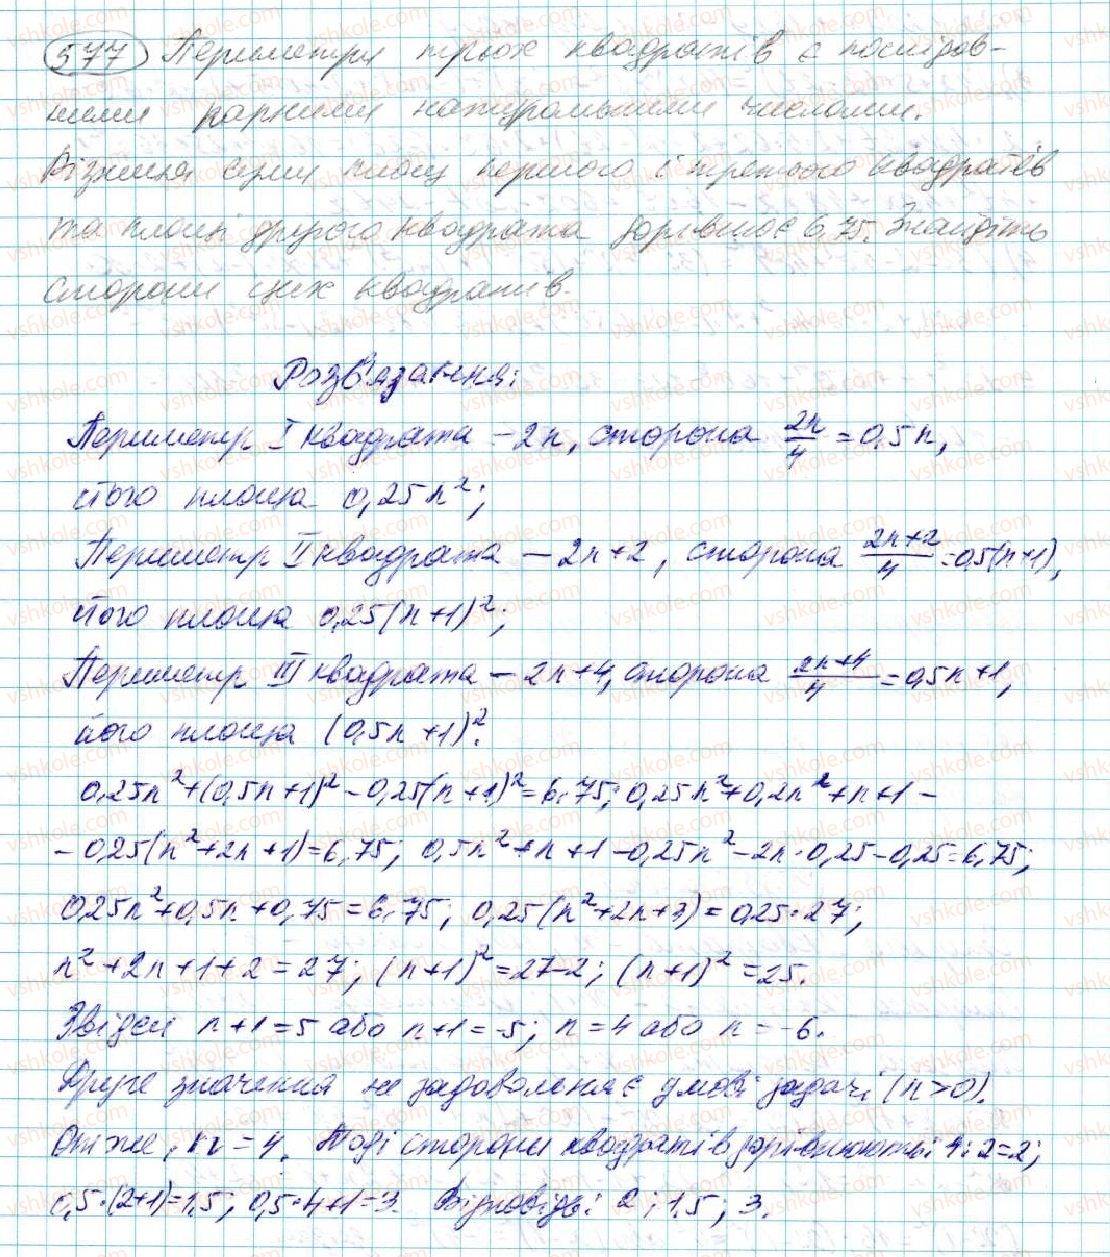 577 Периметри трьох квадратів є послідов-
ними парними натуральними числами.
Різниця суми площ першого і третього квадратів
та площі другого квадрата дорівнює 6,75. Знайдіть
сторони цих квадратів.
Розв'язання:
Периметр I квадрата – 2n, сторона 2n/4 = 0,5n,
його площа 0,25n²;
Периметр II квадрата – 2n+2, сторона 2n+2/4 = 0,5(n+1),
його площа 0,25(n+1)²;
Периметр III квадрата – 2n+4, сторона 2n+4/4 = 0,5n+1,
його площа (0,5n+1)².
0,25n²+(0,5n+1)²-0,25(n+1)²=6,75; 0,25n²+0,2n²+n+1-
-0,25(n²+2n+1)=6,75; 0,5n²+n+1-0,25n²-2n·0,25-0,25=6,75;
0,25n²+0,5n+0,75=6,75; 0,25(n²+2n+3)=0,25·27;
n²+2n+1+2=27; (n+1)²=27-2; (n+1)²=25.
Звідси n+1=5 або n+1=-5; n=4 або n=-6.
Друге значення не задовольняє умові задачі (n>0).
Отже, n=4. Тоді сторони квадратів дорівнюють: 4:2=2;
0,5·(2+1)=1,5; 0,5·4+1=3. Відповідь: 2; 1,5; 3.